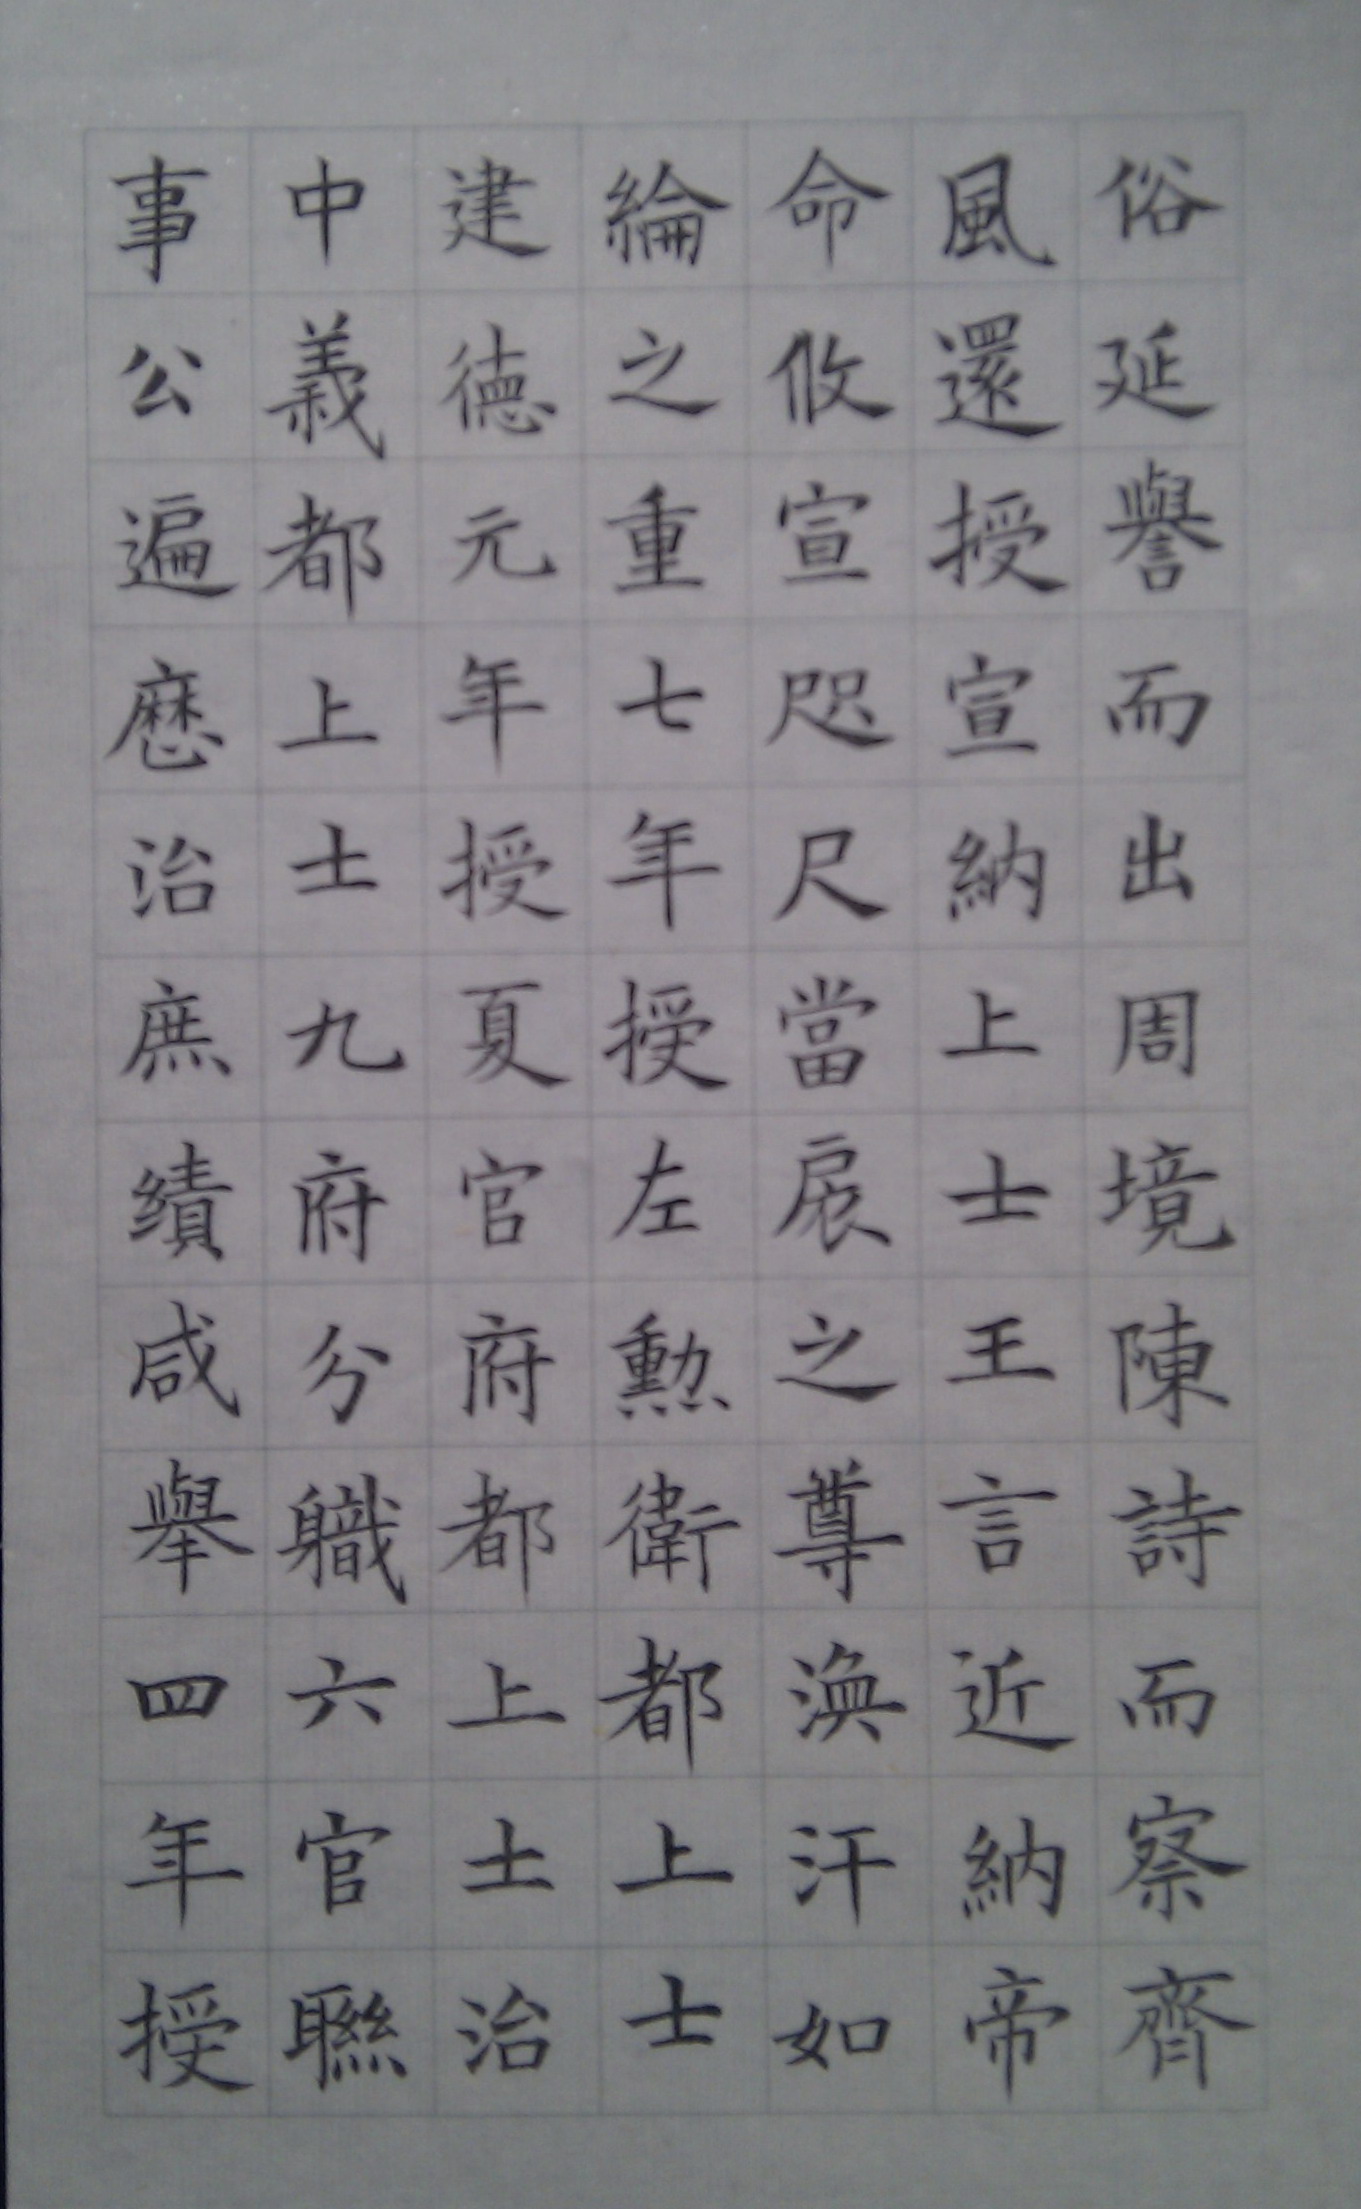 俗延譽而出周境陳詩而察齊
風還授宣納上士王言近納帝
命攸宣咫尺當扆之尊渙汗如
綸之重七年授左勲衛都上士
建德元年授夏官府都上士治
中義都上士九府分職六官聯
事公遍歷治庶績咸舉四年授